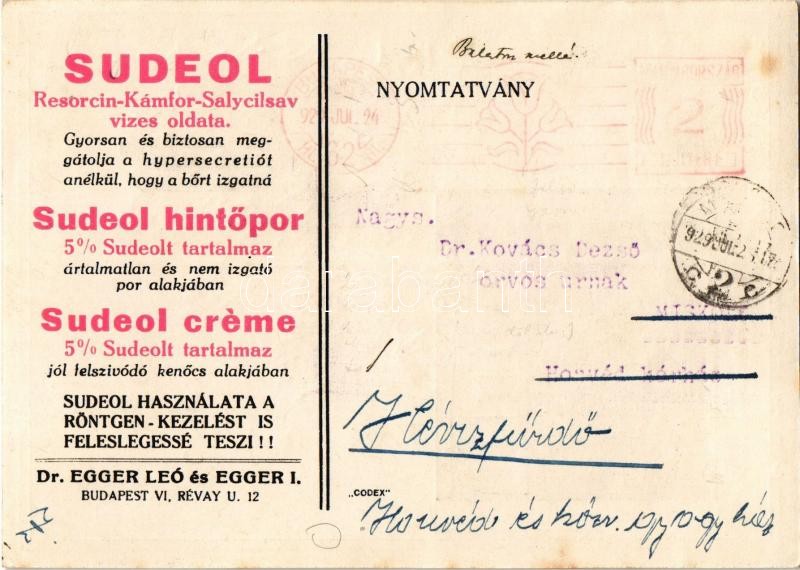 SUDEOL
Resorcin-Kámfor-Salycilsav
vizes oldata.
Gyorsan és biztosan meg-
gátolja a hypersecretiót
anélkül, hogy a bőrt izgatná
Sudeol hintőpor
5% Sudeolt tartalmaz
ártalmatlan és nem izgató
por alakjában
Sudeol crème
5% Sudeolt tartalmaz
jól felszivódó kenőcs alakjában
SUDEOL HASZNÁLATA A
RÖNTGEN-KEZELÉST IS
FELESLEGESSÉ TESZI!!
Dr. EGGER LEÓ és EGGER I.
BUDAPEST VI, RÉVAY U. 12
Balaton mellé.
NYOMTATVÁNY
JUL. 24
2
Nagys.
Dr.Kovács Dezső
orvos urnak
MISKOLC
Honvéd kórház
929 JUL 2
2
Hévizfürdő
„CODEX"
Honvéd és közr. gyógyház
darabanth